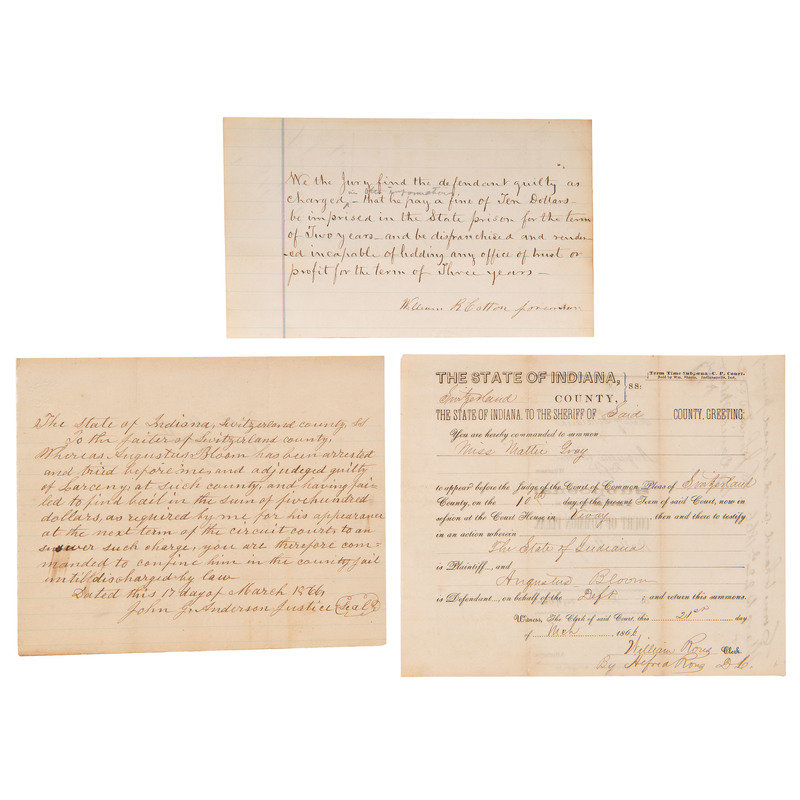 We the Jury find the defendant guilty as
in the information
charged, - that he pay a fine of Ten Dollars
be imprised in the State prison for the term
of Two years - and be disfranchised and render-
ed incapable of holding any office of trust or
profit for the term of Three years -
William R. Cotton foreman
The State of Indiana, Switzerland county, Ss
To the jailer of Switzerland county,
Whereas Augustus Bloom has been arrested
and tried before me, and adjudged guilty
of Larceny, at such county, and having fai-
led to find bail in the sum of five hundred
dollars, as required by me for his appearance
at the next term of the circuit court, to an
swer such charge, you are therefore com-
manded to confine him in the county jail
until discharged by law
Dated this 17 day of March 1866
John J. Anderson Justice (Seal)
THE STATE OF INDIANA, SS:
Term Time Subpœna—C. P. Court.
Indianapolis, Ind.
Switzerland COUNTY,
THE STATE OF INDIANA, TO THE SHERIFF OF Said COUNTY, GREETING:
You are hereby commanded to summon
Miss Mattie Gray
to appear before the Judge of the Court of Common Pleas of Switzerland
County, on the 10th day of the present Term of said Court, now in
session at the Court House in Vevay then and there to testify
in an action wherein
The State of Indiana
is Plaintiff, and
Augustus Bloom
is Defendant, on behalf of the Deft; and return this summons.
Witness, The Clerk of said Court, this 21st day
of Mch 1866
William Rous Clerk
By Alfred Rous D.C.